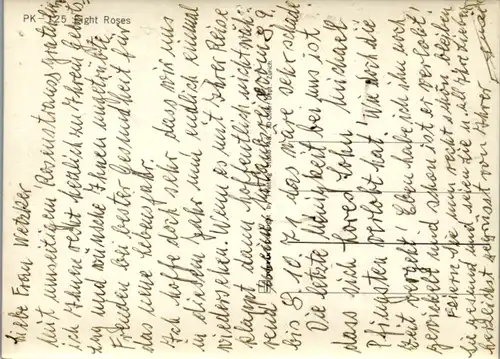 PK - 125 Eight Roses
Liebe Frau Wetzker
mit umseitigem Rosenstrauss gratuliere
ich Ihnen recht herzlich zu Ihrem Geburts-
tag und wünsche Ihnen ungetrübte
Freuden bei bester Gesundheit für
das neue Lebensjahr.
Ich hoffe doch sehr dass wir uns
in diesem Jahr nun endlich einmal
wiedersehen. Wenn es mit Ihrer Reise
klappt dann hoffentlich nicht wäh-
rend vom 8.9.
bis 8.10.71 das wäre sehr schade
Die letzte Neuigkeit bei uns ist
dass sich Michael
Pfingsten verlobt hat! Wo ist die
Zeit Eben habe ich ihn noch
gewickelt und schon ist er verlobt!
Feiern Sie nun recht schön bleiben
Sie gesund und seien Sie u. all Ihre Lieben
herzlichst gegrüsst von Ihrer